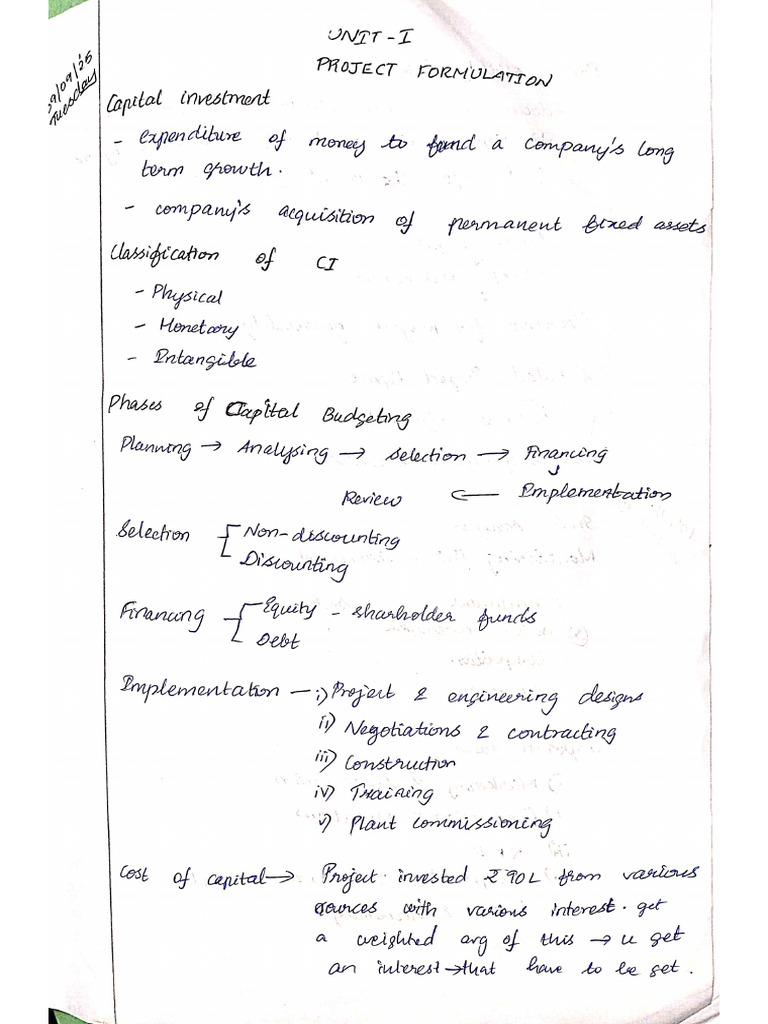 UNIT-I
PROJECT FORMULATION
29/09/'25
Tuesday
Capital investment
- expenditure of money to fund a company's long
term growth.
- company's acquisition of permanent fixed assets
Classification of CI
- Physical
- Monetary
- Intangible
Phases of Capital Budgeting
Planning → Analysing → selection → Financing
↓
Review ← Implementation
Selection - Non-discounting
- Discounting
Financing - Equity - sharholder funds
- Debt
Implementation - i) Project & engineering designs
ii) Negotiations & contracting
iii) Construction
iv) Training
v) Plant commissioning
Cost of capital → Project invested ₹90L from various
sources with various interest. get
a weighted avg of this → u get
an interest → that have to be get.